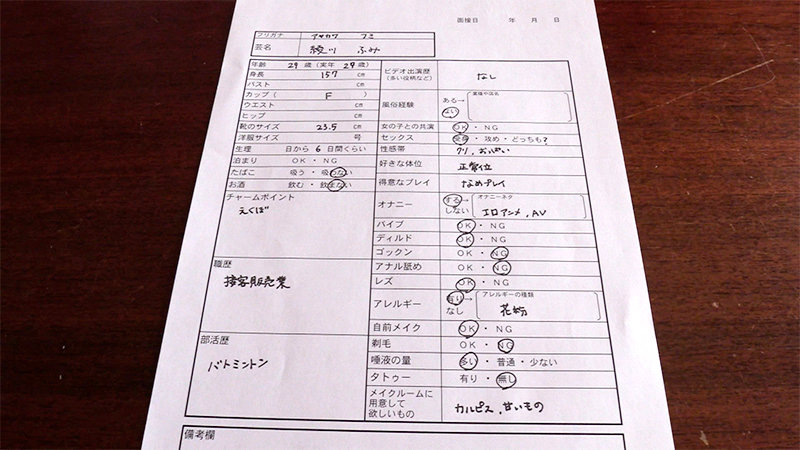 面接日　年　月　日
フリガナ　アヤカワ　フミ
芸名　綾川　ふみ
年齢　29歳（実年29歳）
身長　157　cm
バスト　cm
カップ（　F　）
ウエスト　cm
ヒップ　cm
靴のサイズ　23.5　cm
洋服サイズ　号
生理　日から6日間くらい
泊まり　OK・NG
たばこ　吸う・吸わない
お酒　飲む・飲まない
チャームポイント
えくぼ
職歴
接客販売業
部活歴
バトミントン
ビデオ出演歴
（多い役柄など）
なし
風俗経験　ある→　業種や店名
ない
女の子との共演　OK・NG
セックス　受身・攻め・どっちも?
性感帯　クリ、おっぱい
好きな体位　正常位
得意なプレイ　なめプレイ
オナニー　する→　オナニーネタ
しない　エロアニメ、AV
バイブ　OK・NG
ディルド　OK・NG
ゴックン　OK・NG
アナル舐め　OK・NG
レズ　OK・NG
アレルギー　有り→　アレルギーの種類
なし　花粉
自前メイク　OK・NG
剃毛　OK・NG
唾液の量　多い・普通・少ない
タトゥー　有り・無し
メイクルームに
用意して
欲しいもの
カルピス、甘いもの
備考欄